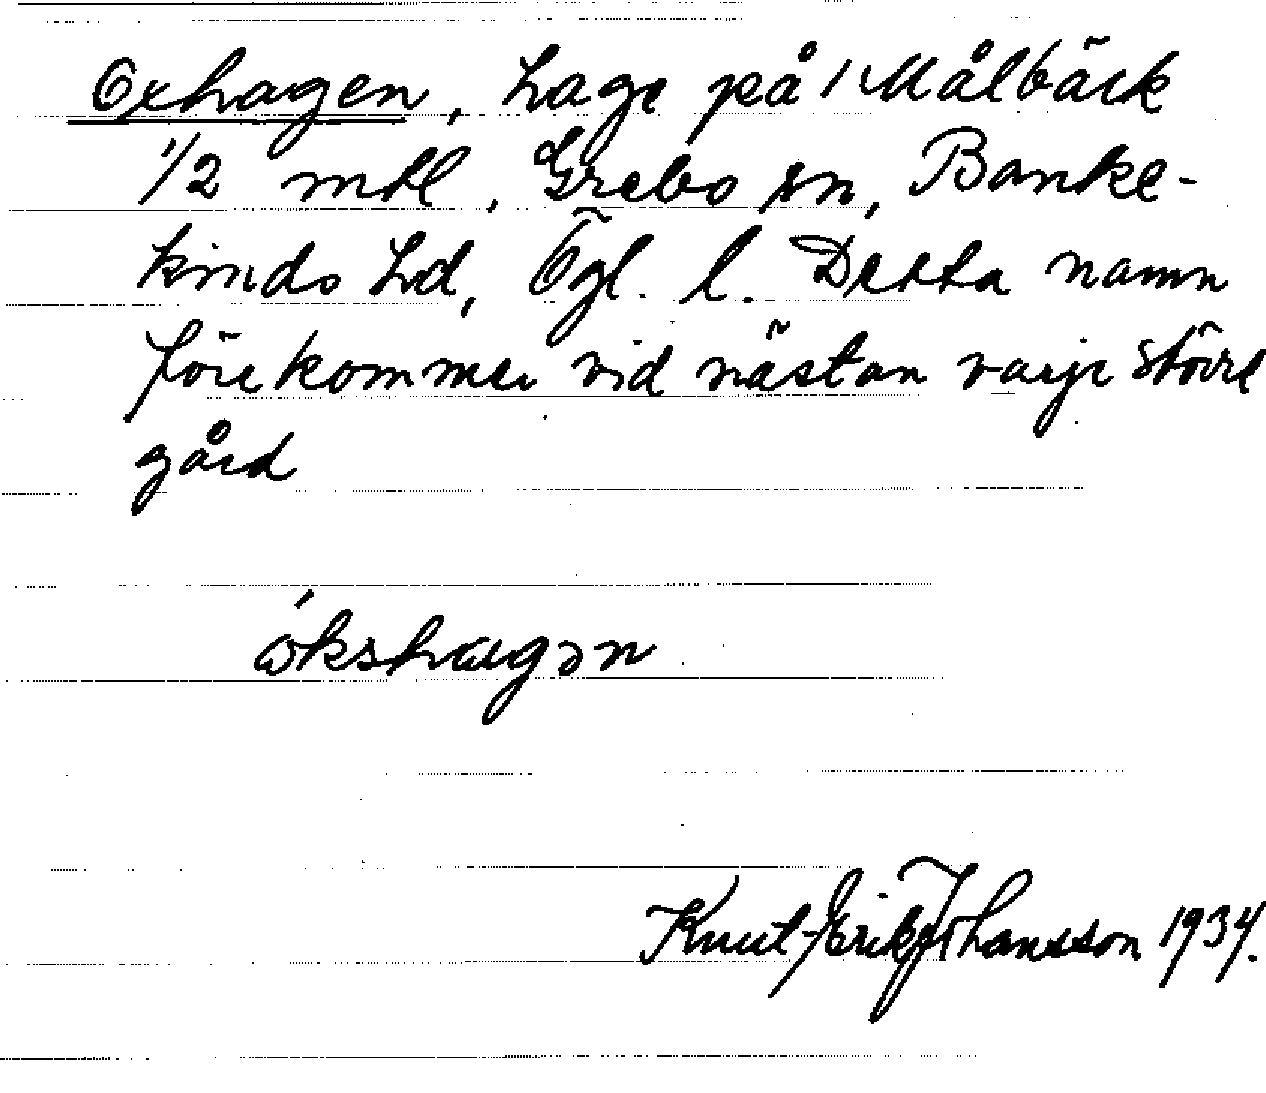 Oxhagen, hage på 1 Målbäck
1/2 mtl, Grebo sn, Banke-
kinds hd, Ögl. l. Detta namn
förekommer vid nästan varje större
gård
ókshagən
Knut-Erik Johansson 1934.